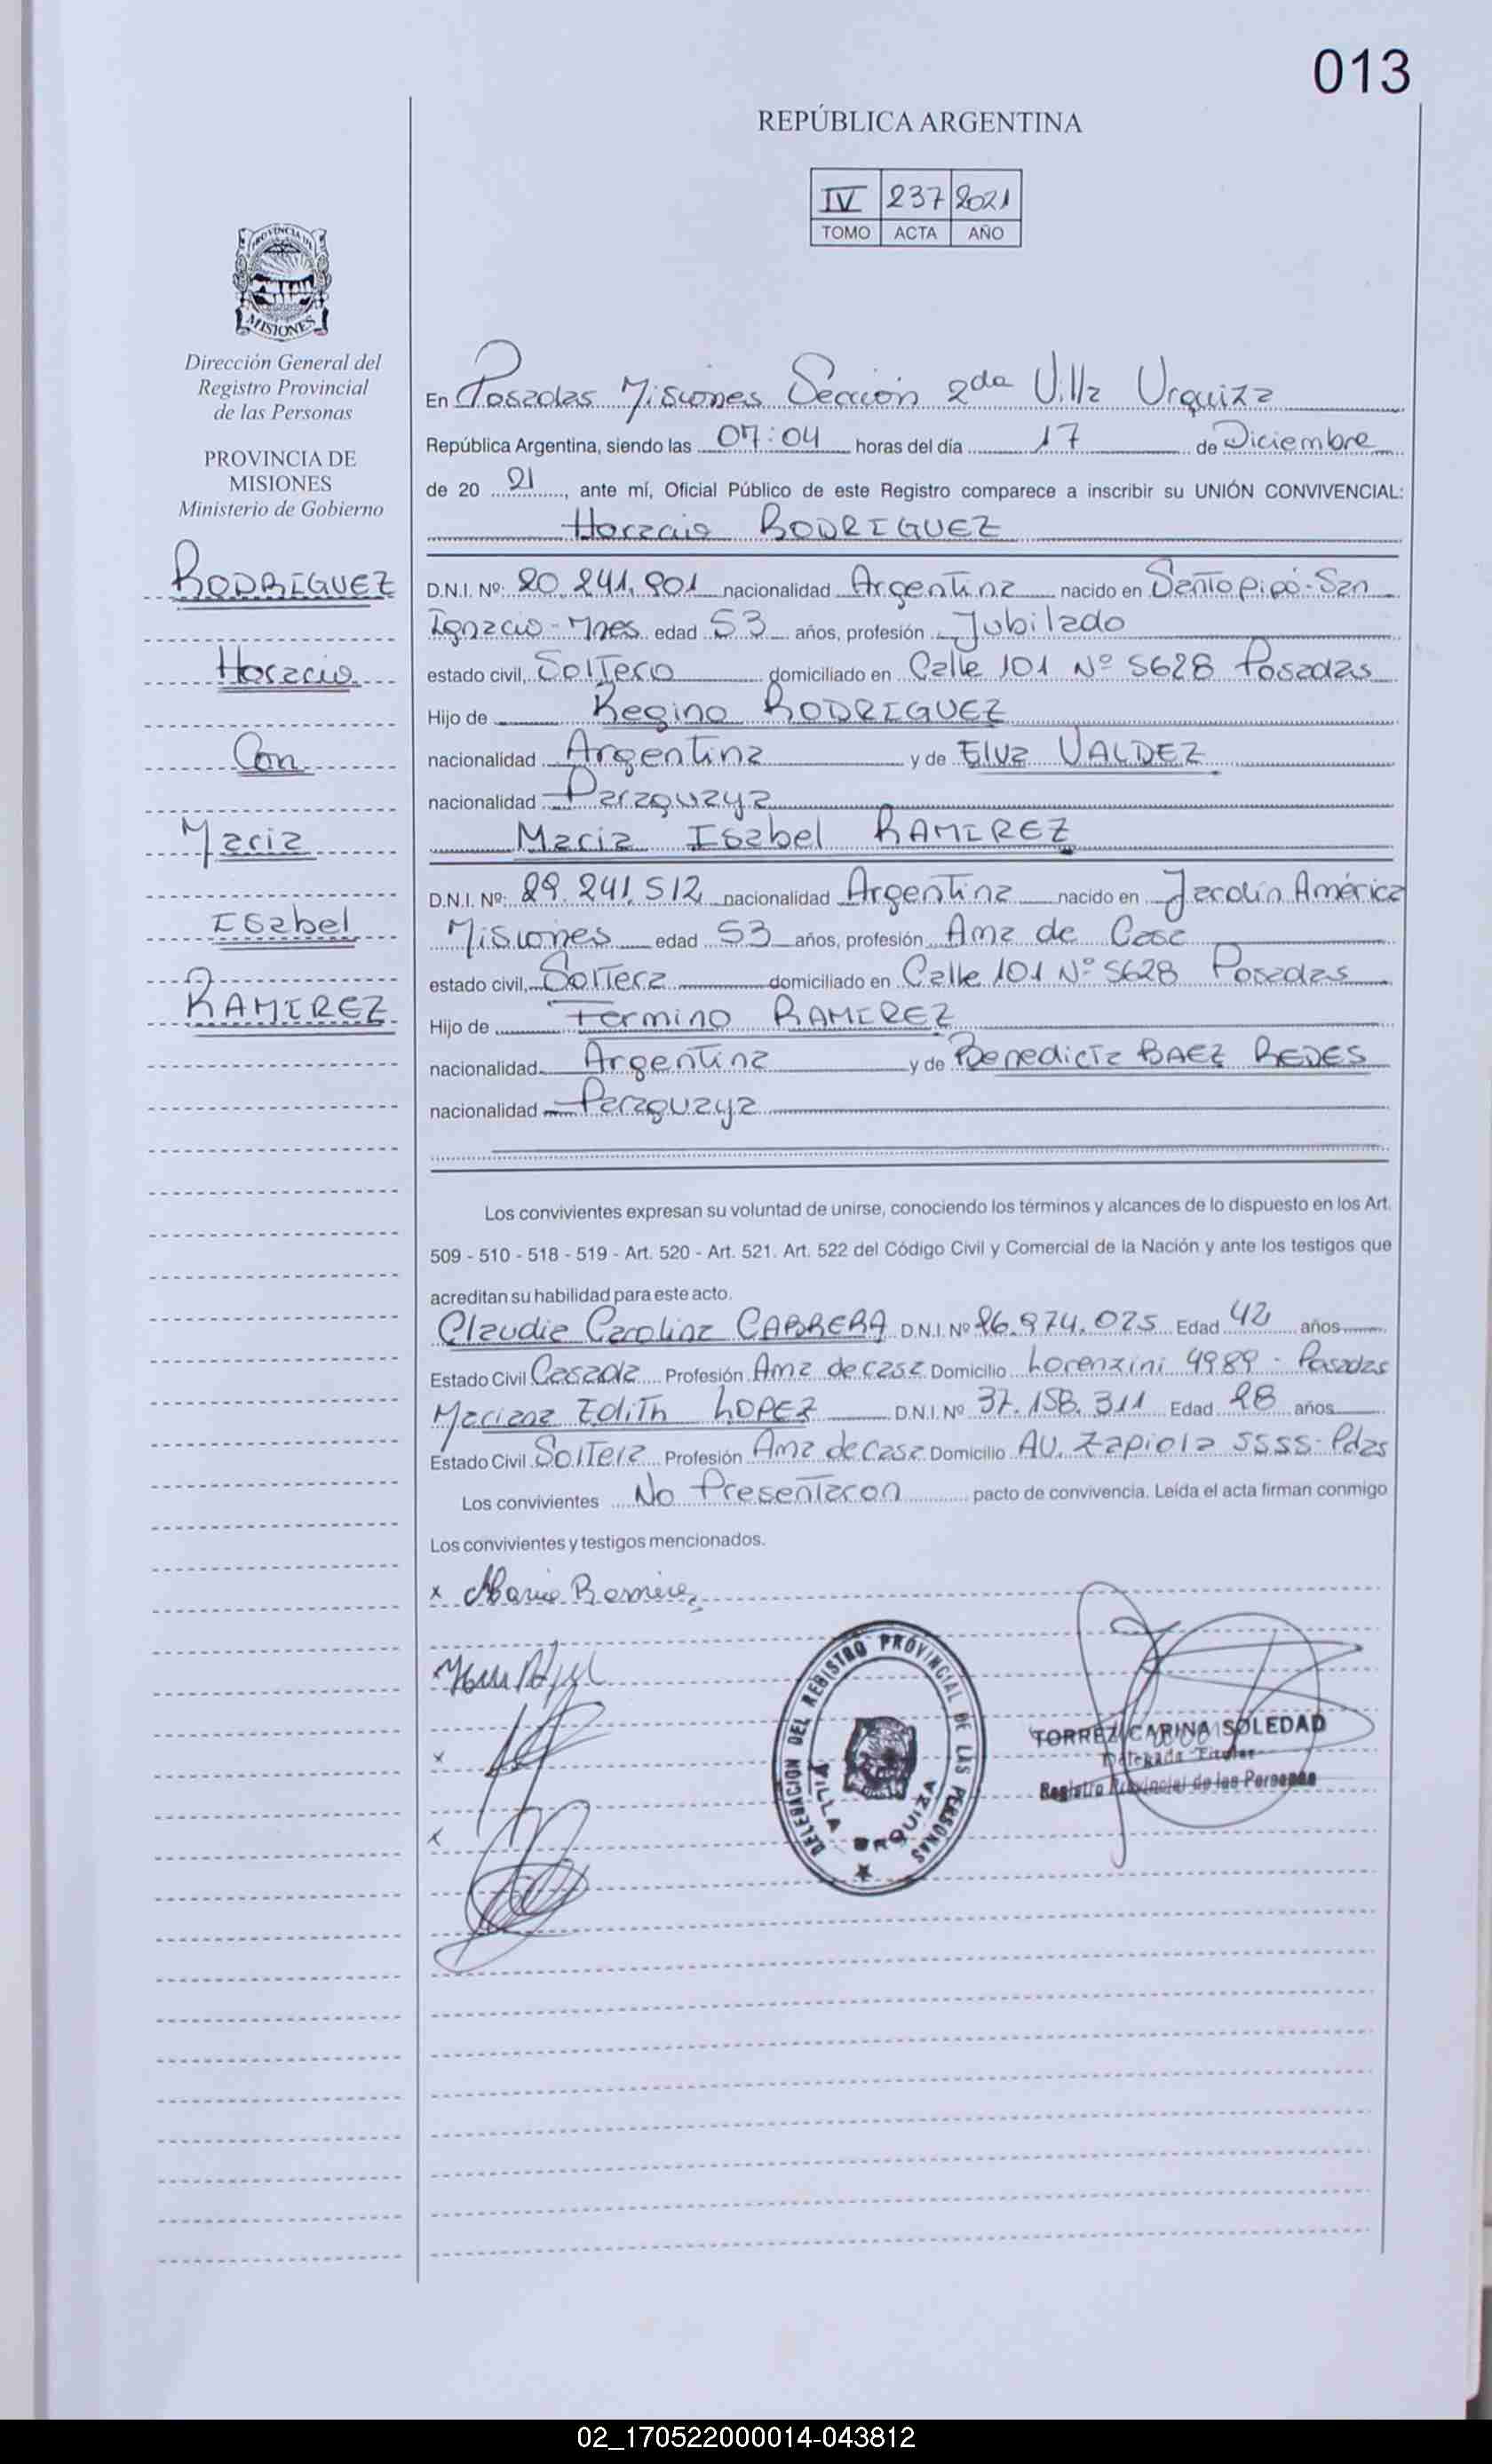 013
REPÚBLICA ARGENTINA
IV 237 2021
TOMO ACTA AÑO
PROVINCIA DE MISIONES
Dirección General del
Registro Provincial
de las Personas
PROVINCIA DE
MISIONES
Ministerio de Gobierno
RODRIGUEZ
Horacio
Con
Maria
Isabel
RAMIREZ
En Posadas Misiones Sección 2da Villa Urquiza
República Argentina, siendo las 07:04 horas del día 17 de Diciembre
de 20 21, ante mí, Oficial Público de este Registro comparece a inscribir su UNIÓN CONVIVENCIAL:
Horacio RODRIGUEZ
D.N.I. Nº: 20.241.901 nacionalidad Argentina nacido en Santo Pipó-San
Ignacio-Mnes. edad 53 años, profesión Jubilado
estado civil, Soltero domiciliado en Calle 101 Nº 5628 Posadas
Hijo de Regino RODRIGUEZ
nacionalidad Argentina y de Elva VALDEZ
nacionalidad Paraguaya
Maria Isabel RAMIREZ
D.N.I. Nº: 29.241.512 nacionalidad Argentina nacido en Jardín América
Misiones edad 53 años, profesión Ama de Casa
estado civil, Soltera domiciliado en Calle 101 Nº 5628 Posadas
Hijo de Fermino RAMIREZ
nacionalidad Argentina y de Benedicta BAEZ REDES
nacionalidad Paraguaya
Los convivientes expresan su voluntad de unirse, conociendo los términos y alcances de lo dispuesto en los Art.
509 - 510 - 518 - 519 - Art. 520 - Art. 521. Art. 522 del Código Civil y Comercial de la Nación y ante los testigos que
acreditan su habilidad para este acto.
Claudia Carolina CABRERA D.N.I. Nº 26.974.025 Edad 42 años
Estado Civil Casada Profesión Ama de casa Domicilio Lorenzini 4989 - Posadas
Mariana Edith LOPEZ D.N.I. Nº 37.158.311 Edad 28 años
Estado Civil Soltera Profesión Ama de casa Domicilio AV. Zapiola 5555-Pdas
Los convivientes No Presentaron pacto de convivencia. Leída el acta firman conmigo
Los convivientes y testigos mencionados.
x Maria Ramirez
x
x
DELEGACION DEL REGISTRO PROVINCIAL DE LAS PERSONAS
VILLA URQUIZA
TORREZ CARINA SOLEDAD
Delegada Titular
Registro Provincial de las Personas
02_170522000014-043812